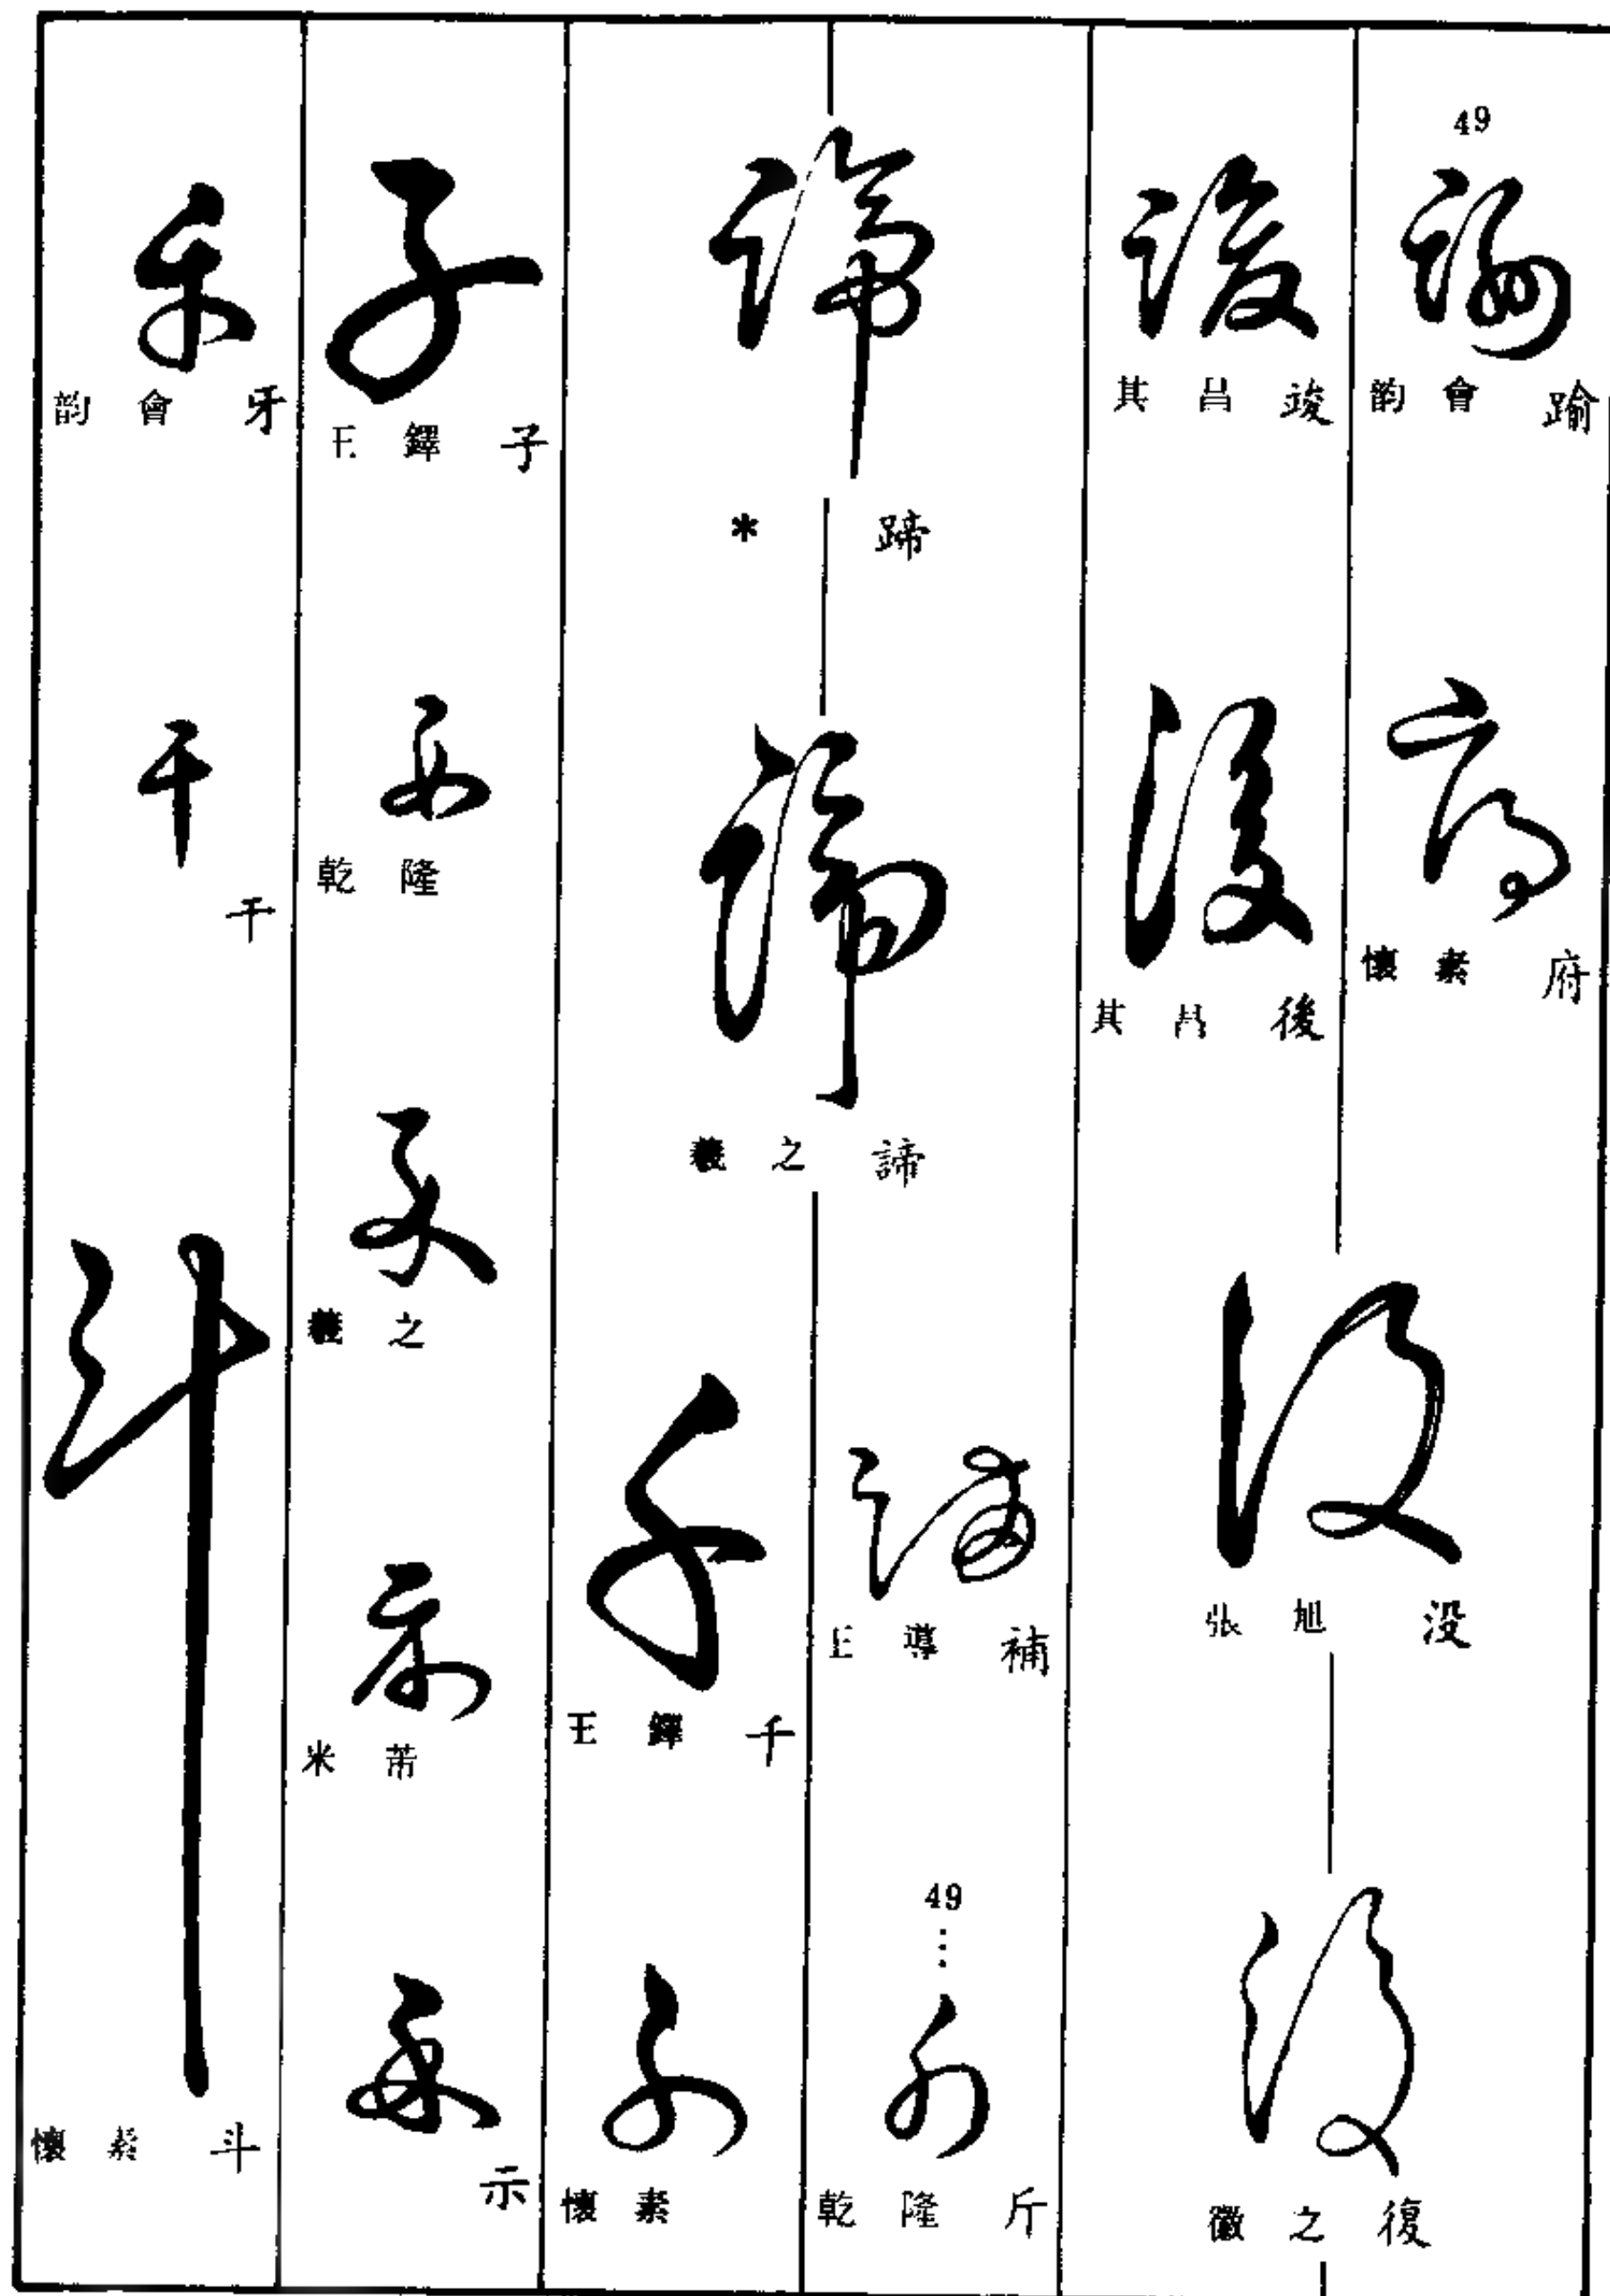 49
韵會 踰
懷素 府
其昌 竣
其昌 後
張旭 没
徽之 復
* 蹄
羲之 諦
王導 補
49
⋮
乾隆 斤
王鐸 千
懷素
王鐸 子
乾隆
羲之
米芾
示
韵會 牙
干
懷素 斗